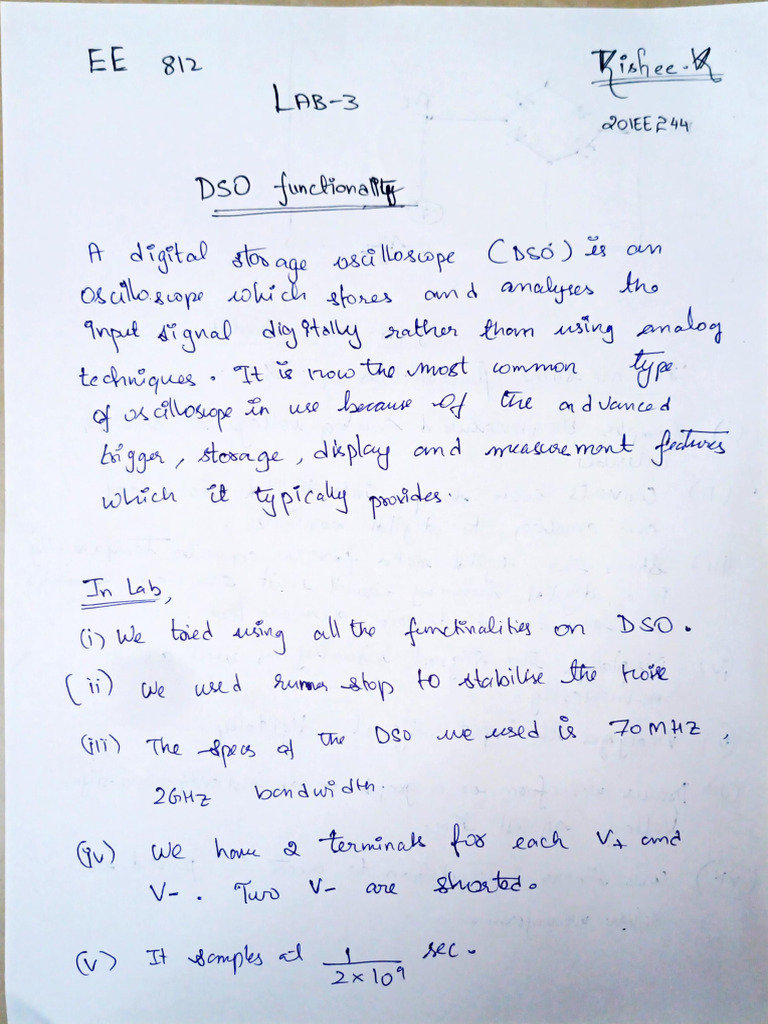 EE 812
Rishee.K
LAB-3
201EE244
DSO functionality
A digital storage oscilloscope (DSO) is an
oscilloscope which stores and analyses the
input signal digitally rather than using analog
techniques. It is now the most common type
of oscilloscope in use because of the advanced
trigger, storage, display and measurement features
which it typically provides.
In Lab,
(i) We tried using all the functinalities on DSO.
(ii) we used stop to stabilise the noise
(iii) The specs of the DSO we used is 70MHZ,
2GHZ bandwidth.
(iv) We have 2 terminals for each V+ and
V-. Two V- are shorted.
(v) It samples at 1/(2×10⁹) sec.